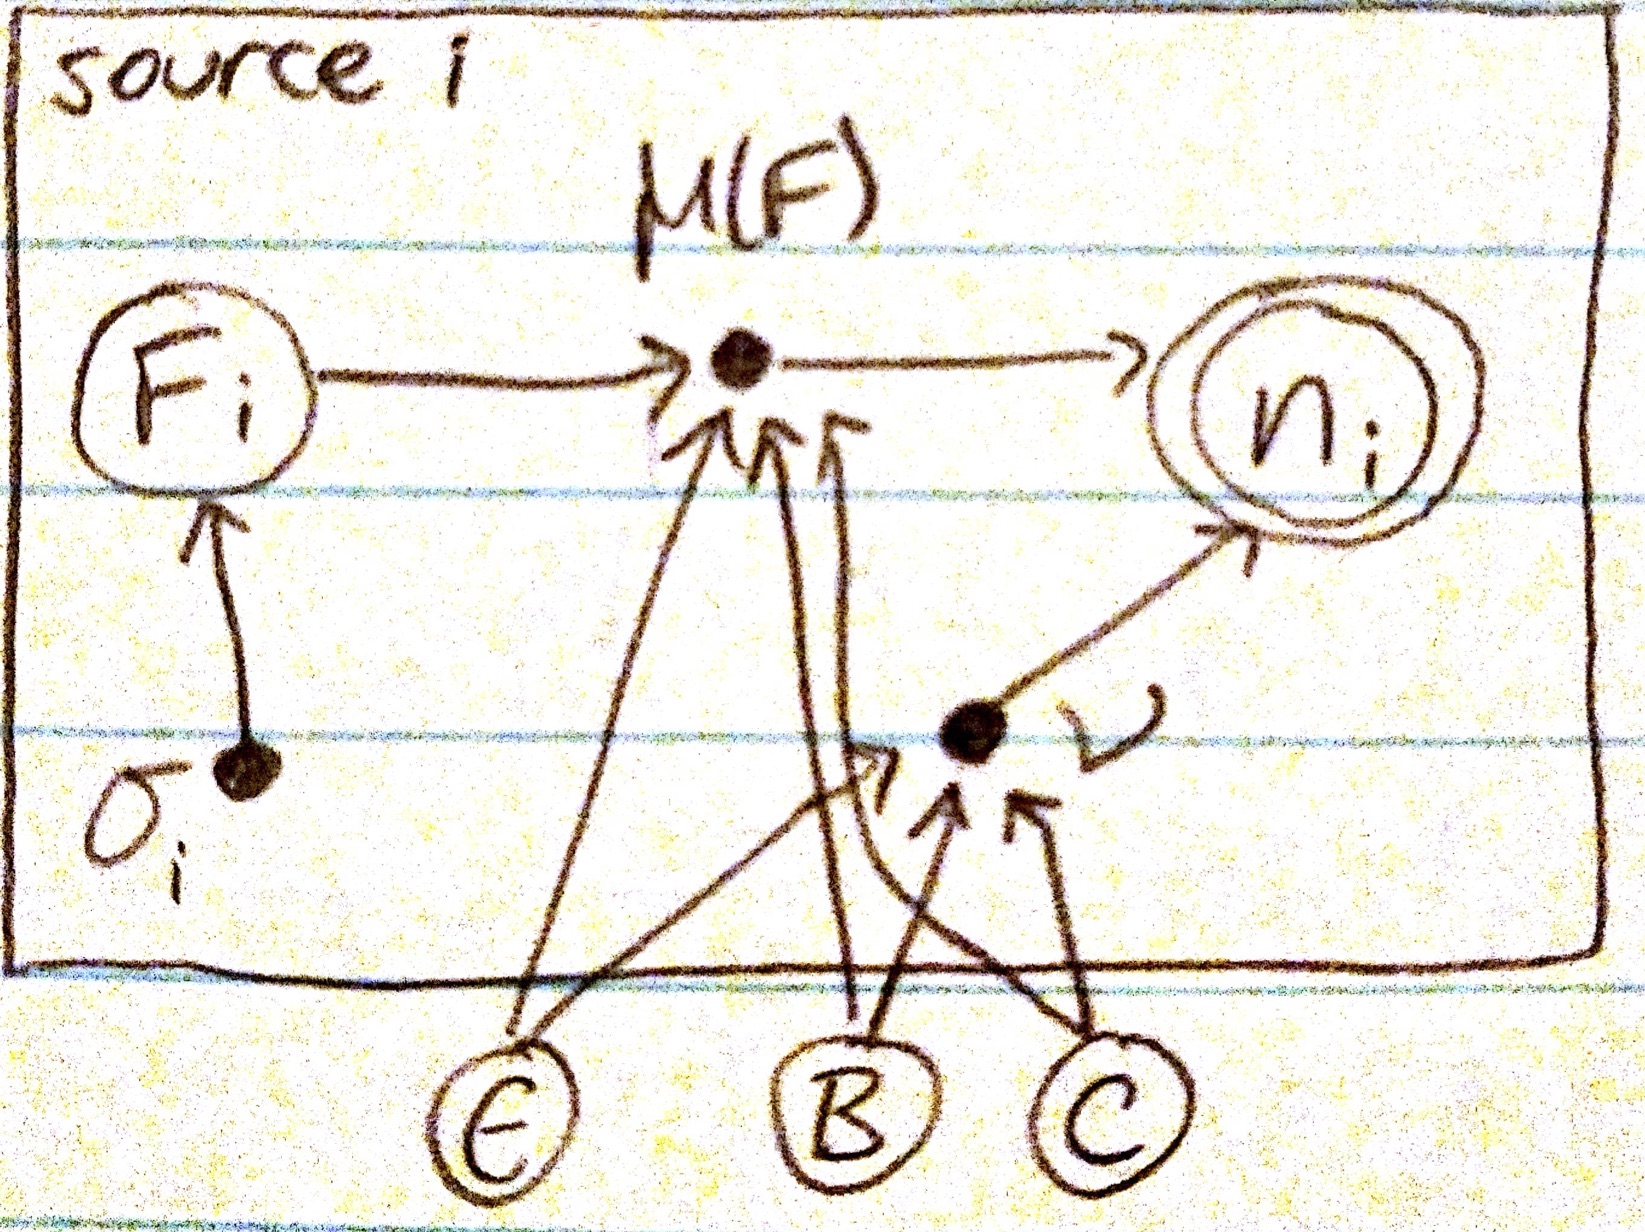 source i
μ(F)
F_i
n_i
σ_i
ν
ϵ
B
C